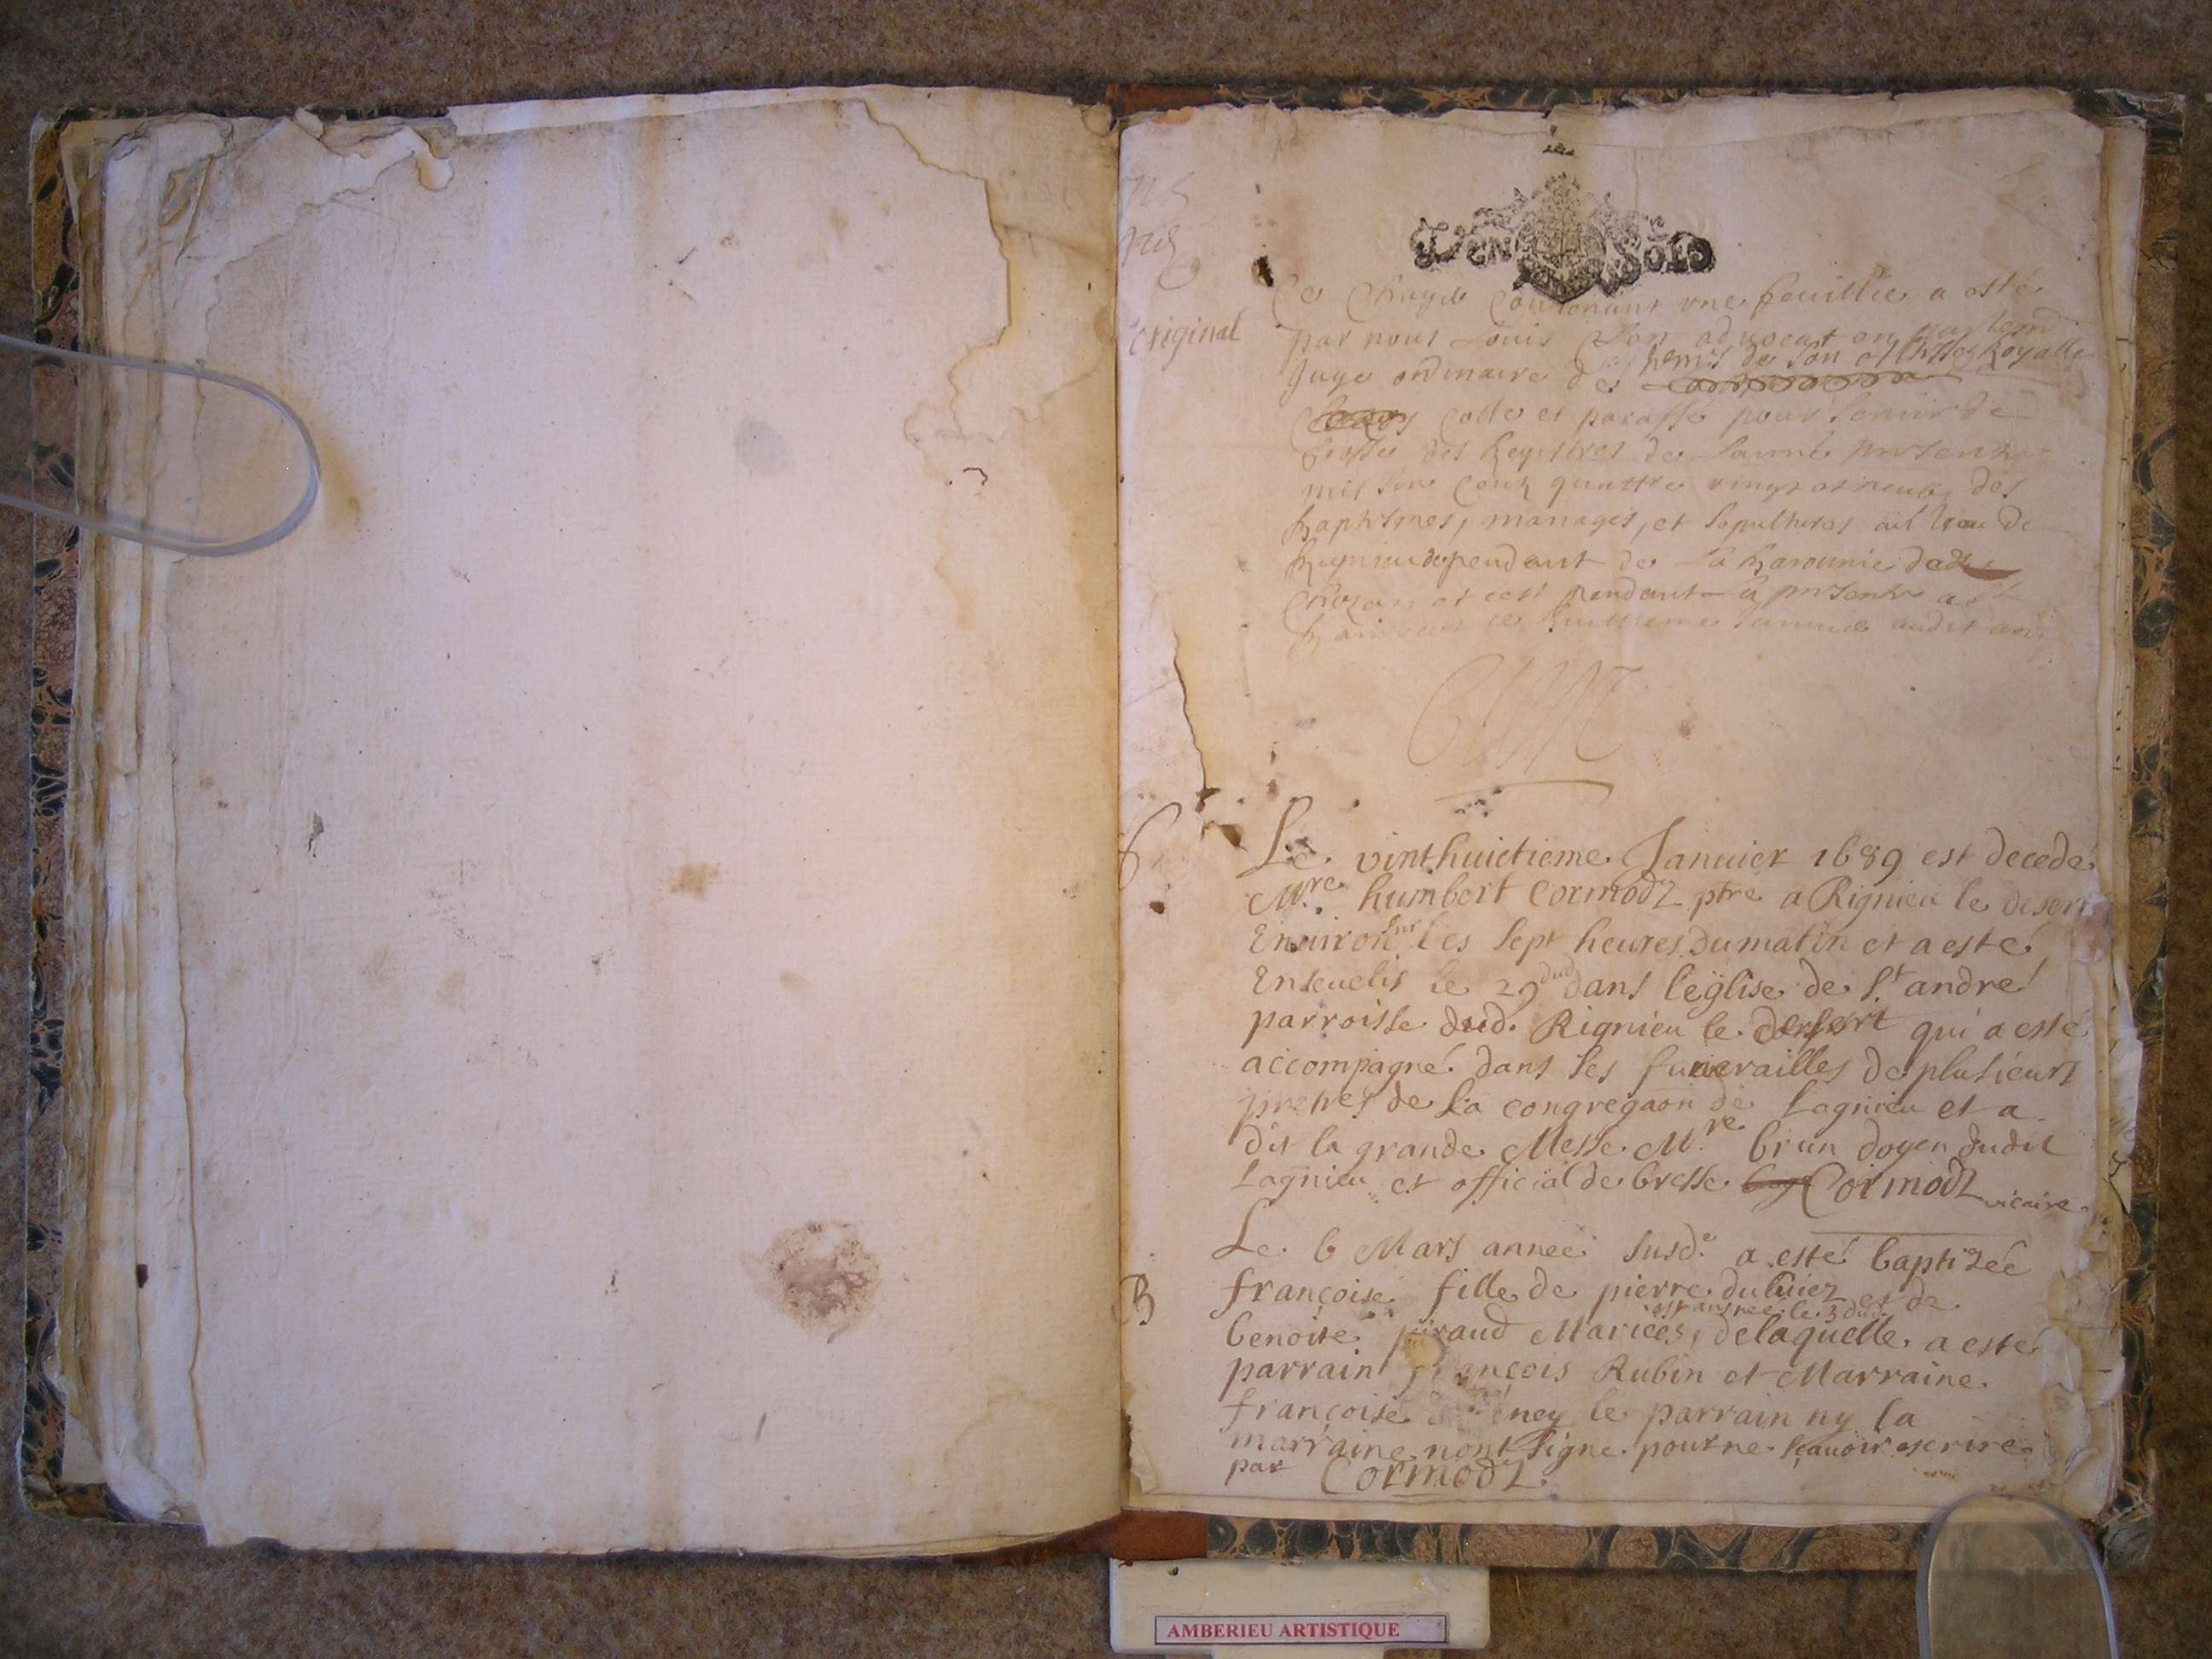 original
Ce Cayer Contenant une feuillie a esté
par nous Louis advocat en
Juge ordinaire des
Cotte et paraffé pour servir de
des Registres de Lannée presente
mil six Cent quattre vingt et neufz des
baptesmes, mariages, et sepultures au lieu de
Rignieu dependant de La baronnie de
et cest pendant La presente
ce huittieme Janvier audit an
Le. vinthuictieme. Januier 1689 est decedé
M.re humbert Cormodz ptre a Rignieu le desert
Enuiron sur les sept heures du matin et a esté
Enseuelis le 29 dud dans l'eglise de St andre
parroisse dud. Rignieu le desert qui a esté
accompagné dans ses funerailles de plusieurs
pretres de la congregaon de Lagnieu et a
dit la grande Messe M.re brun doyen dudit
Lagnieu et official de bresse Cormodz vicaire
Le. 6 Mars anneé susd.e a esté baptizée
B
françoise fille de pierre et de
est née le 3 dud.
benoite Mariées, de laquelle a esté
parrain françois Rubin et Marraine
françoise le parrain ny la
marraine nont signe pour ne scauoir escrire
par Cormodz.
AMBERIEU ARTISTIQUE